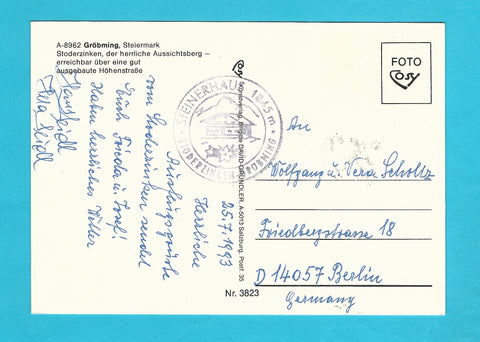 A-8962 Gröbming, Steiermark
Stoderzinken, der herrliche Aussichtsberg –
erreichbar über eine gut
ausgebaute Höhenstraße
25.7.1993
Herrliche
Ausflugsgrüße
vom Stoderzinken sendet
Euch Frieda u. Josef!
Haben herrliches Wetter
Hans Seidl
Seidl
STEINERHAUS 1845 m
STODERZINKEN GRÖBMING
DAVID GRÜNDLER, A-5013 Salzburg, Postf. 35
Nr. 3823
FOTO
Cosy
An
Wolfgang u. Vera Scholtz
Friedbergstrasse 18
D 14057 Berlin
Germany